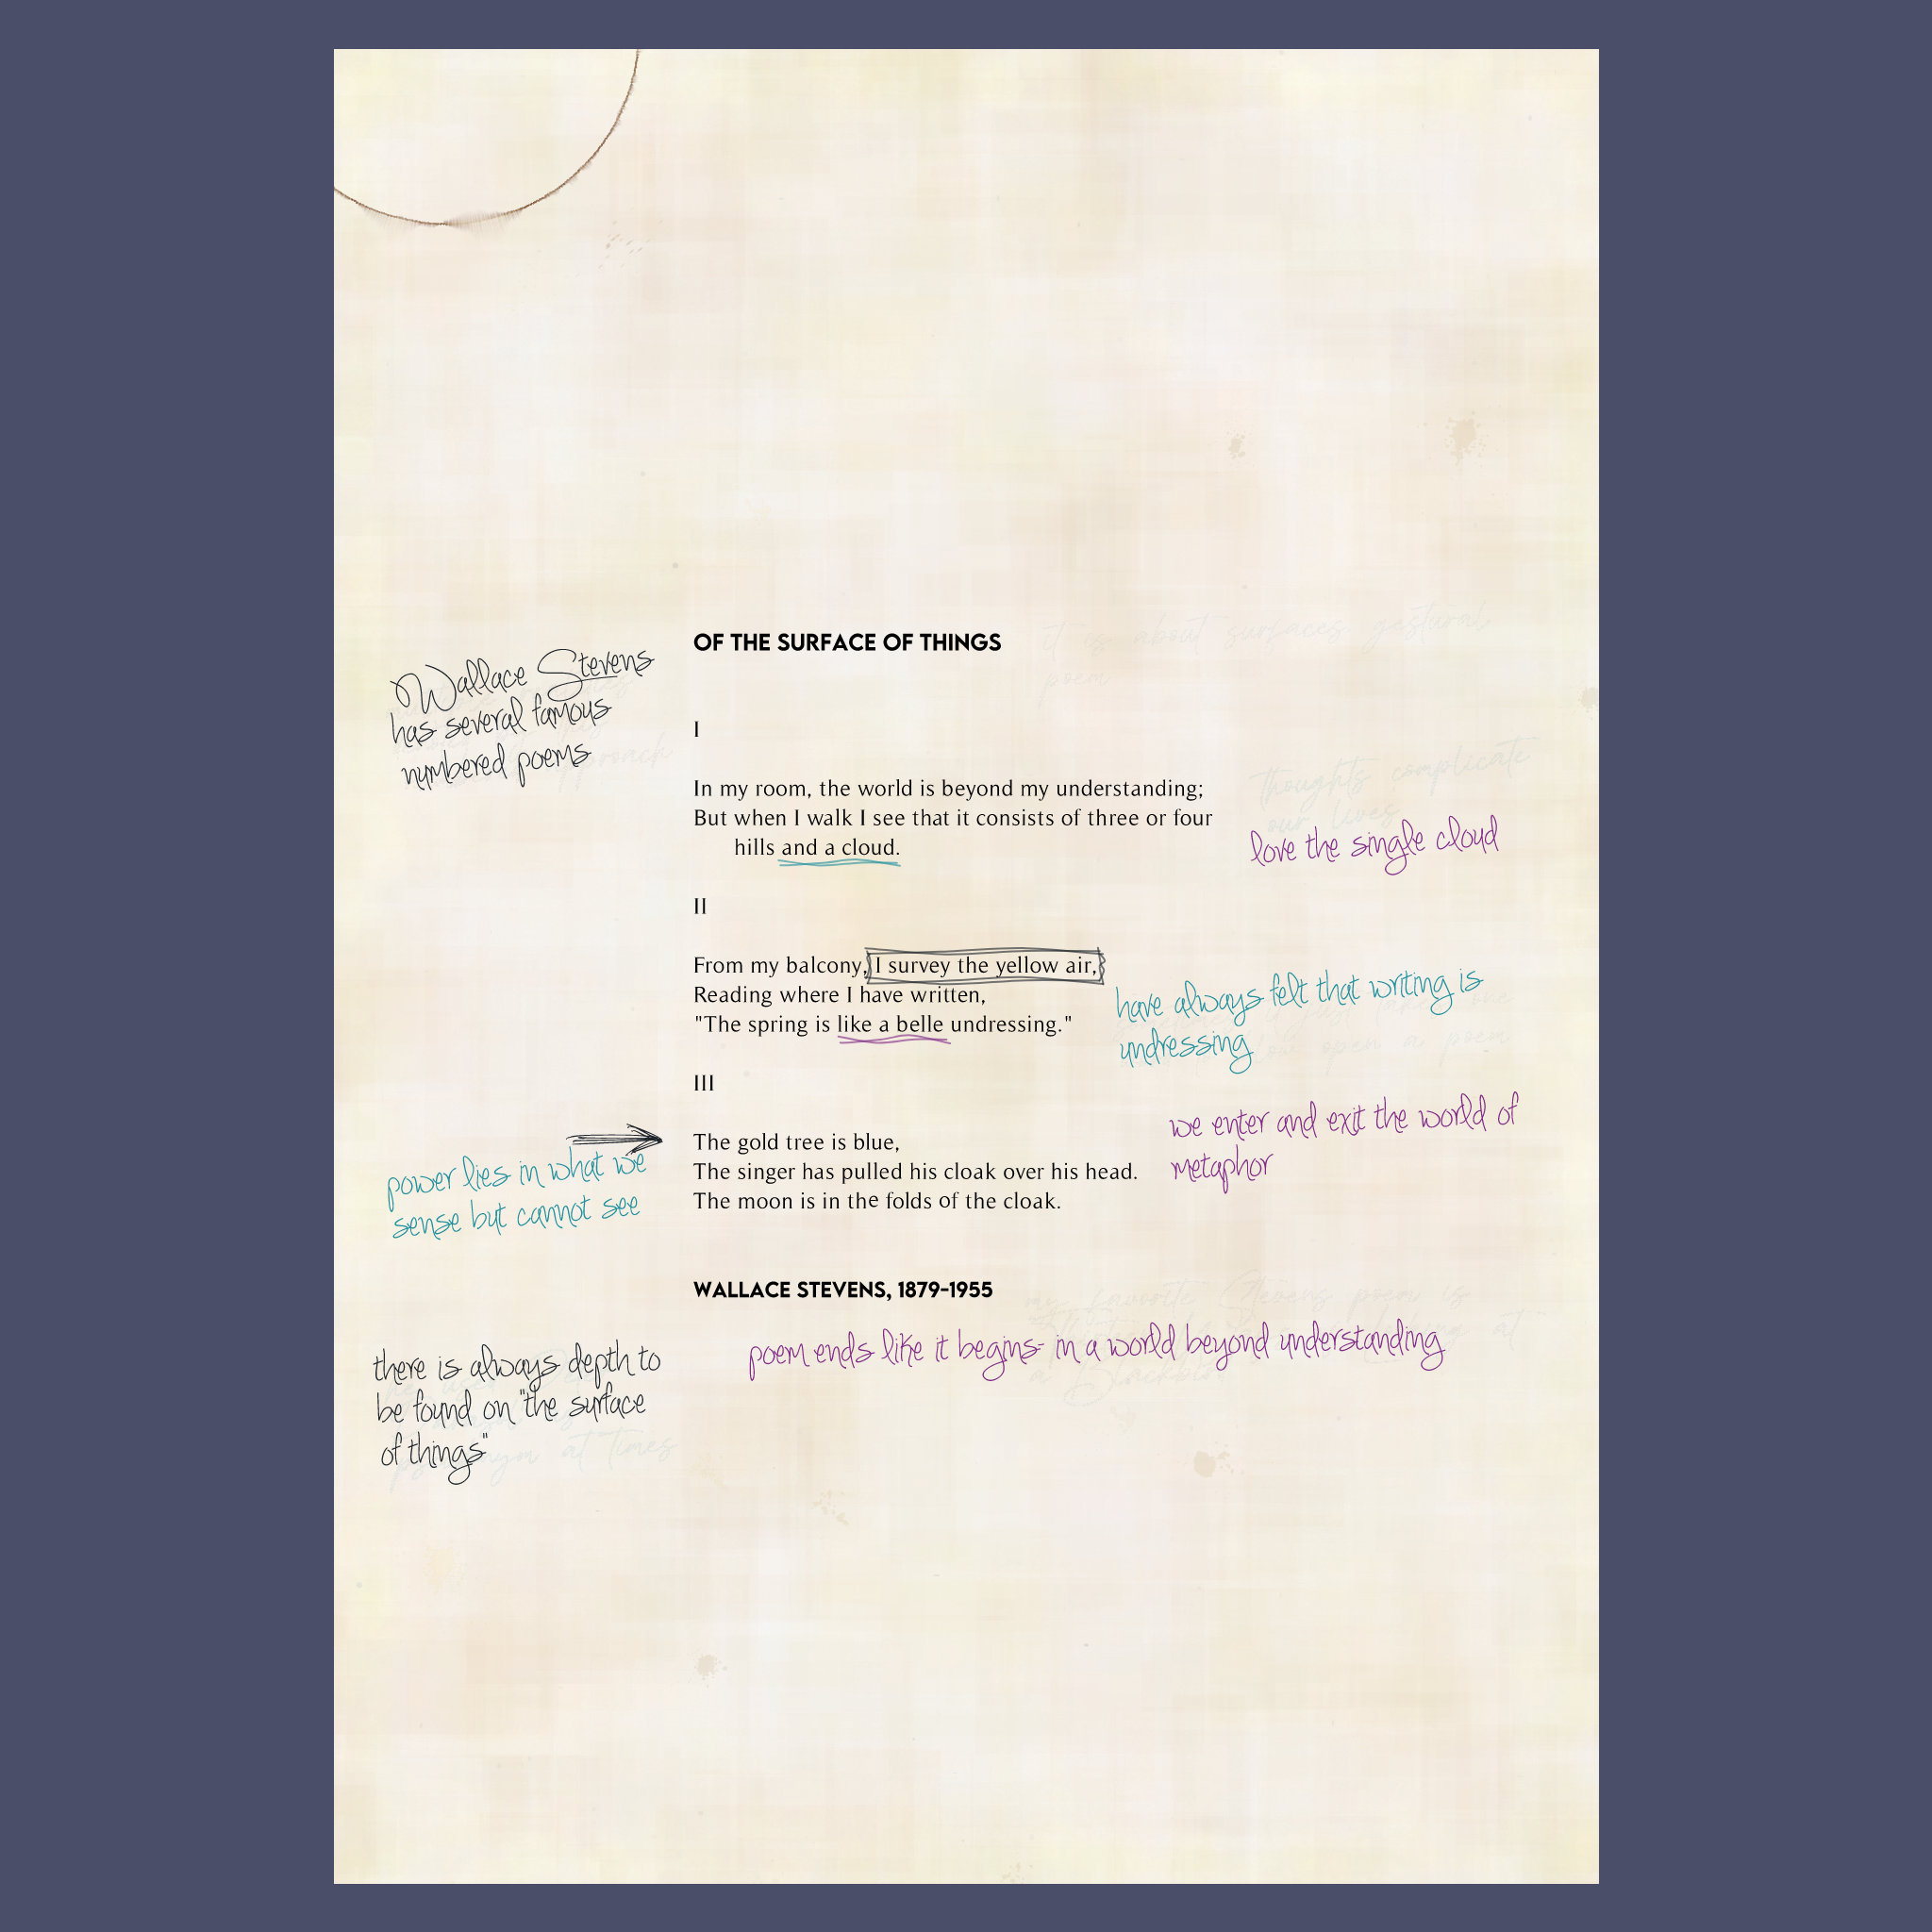 OF THE SURFACE OF THINGS
it is about surfaces, gestural
poem
Wallace Stevens
has several famous
numbered poems
approach
I
In my room, the world is beyond my understanding;
But when I walk I see that it consists of three or four
hills and a cloud.
thoughts complicate
our lives
love the single cloud
II
From my balcony, I survey the yellow air,
Reading where I have written,
"The spring is like a belle undressing."
have always felt that writing is
undressing
open a poem
III
The gold tree is blue,
The singer has pulled his cloak over his head.
The moon is in the folds of the cloak.
we enter and exit the world of
metaphor
power lies in what we
sense but cannot see
WALLACE STEVENS, 1879-1955
my favorite Stevens poem is
at
a
poem ends like it begins- in a world beyond understanding
there is always depth to
be found on "the surface
of things"
at times